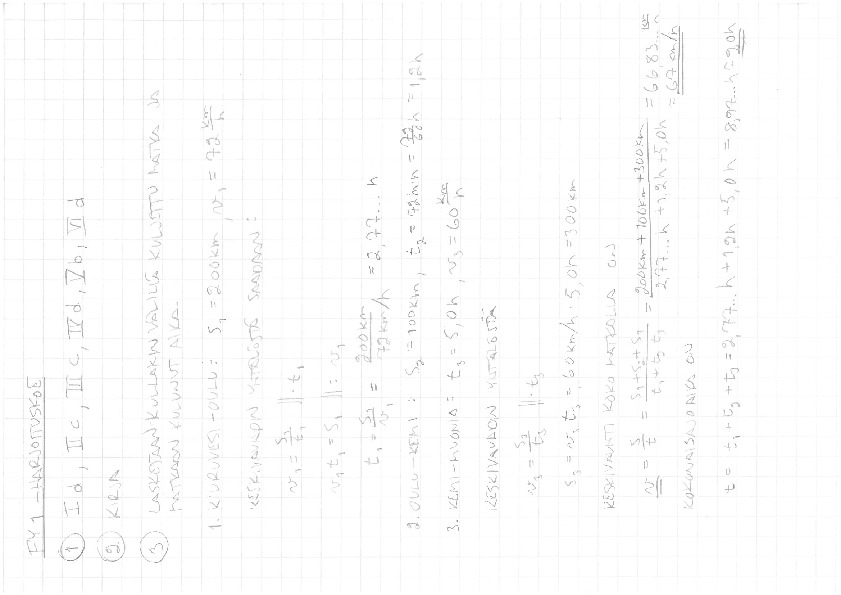 FY1 - HARJOITUSKOE
① I d, II c, III c, IV d, V b, VI d
② KIRJA
③ LASKETAAN KULLAKIN VÄLILLÄ KULJETTU MATKA JA
MATKAAN KULUNUT AIKA.
1. KIURUVESI-OULU: s₁ = 200km, v₁ = 72 km/h
KESKIVAUHDIN YHTÄLÖSTÄ SAADAAN:
v₁ = s₁/t₁ || · t₁
v₁t₁ = s₁ || : v₁
t₁ = s₁/v₁ = 200km/72km/h = 2,77... h
2. OULU-KEMI: s₂ = 100km, t₂ = 72min = 72/60 h = 1,2h
3. KEMI-MUONIO: t₃ = 5,0h, v₃ = 60 km/h
KESKIVAUHDIN YHTÄLÖSTÄ
v₃ = s₃/t₃ || · t₃
s₃ = v₃ t₃ = 60km/h · 5,0h = 300km
KESKIVAUHTI KOKO MATKALLA ON
v = s/t = s₁+s₂+s₃/t₁+t₂+t₃ = 200km+100km+300km/2,77...h+1,2h+5,0h = 66,83... km/h
= 67 km/h
KOKONAISAIKA ON
t = t₁+t₂+t₃ = 2,77...h+1,2h+5,0h = 8,97...h ≈ 9,0h